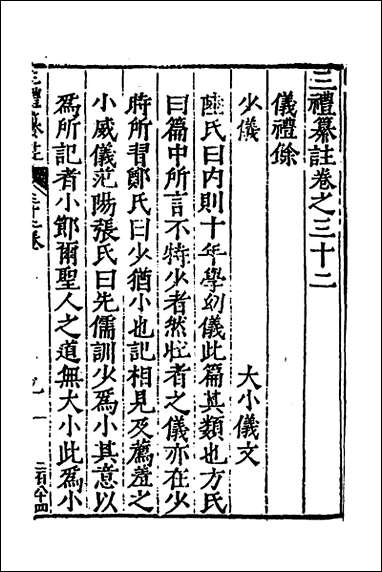 三禮纂註卷之三十二
儀禮餘
少儀 大小儀文
陸氏曰内則十年學幼儀此篇其類也方氏
曰篇中所言不特少者然壯者之儀亦在少
時所習鄭氏曰少猶小也記相見及薦羞之
小威儀范陽張氏曰先儒訓少爲小其意以
爲所記者小節爾聖人之道無大小此爲小
三禮纂註
三十二卷
一
二百八十四